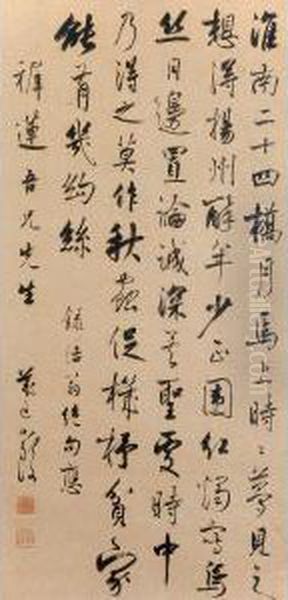 淮南二十四橋月馬上時〻夢見之
想得揚州醉年少正圍紅燭寫烏
絲日邊置論誠深矣聖處時中
乃得之莫作秋蟲促機杼貧家
能有幾絇絲 錄涪翁絕句應
蓮吾兄先生